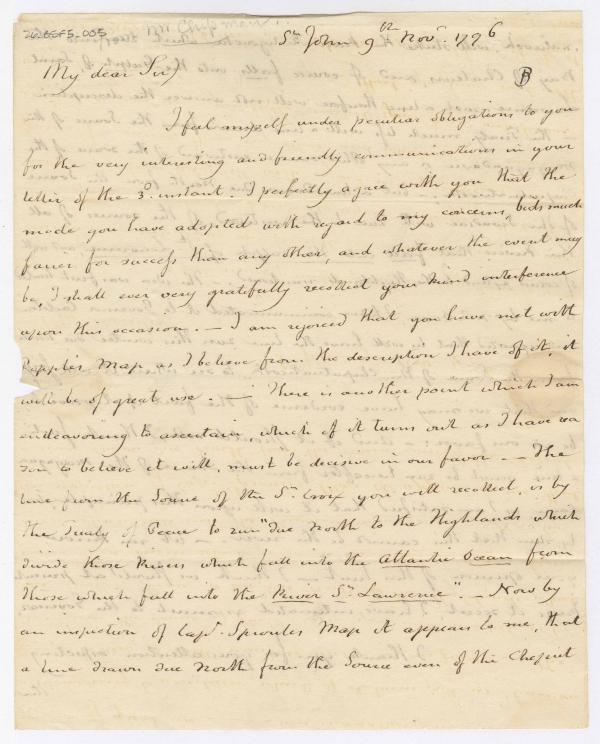 26BSF5-005
St. John 9th Novr. 1796
My dear Sir,
I feel myself under peculiar obligations to you
for the very interesting and friendly communications in your
letter of the 3d. instant. I perfectly agree with you that the
mode you have adopted with regard to my concerns, bids much
fairer for success than any other, and whatever the event may
be, I shall ever very gratefully recollect your kind interference
upon this occasion. — I am rejoiced that you have met with
Popple's Map as I believe from the description I have of it, it
will be of great use. — There is another point which I am
endeavouring to ascertain, which if it turns out as I have rea
son to believe it will, must be decisive in our favor. — The
line from the Source of the St. Croix you will recollect, is by
the Treaty of Peace to run "due north to the Highlands which
divide those Rivers which fall into the Atlantic Ocean from
those which fall into the River St. Lawrence". — Now by
an inspection of Capt. Sproules Map it appears to me, that
a line drawn due North from the Source even of the Cheput